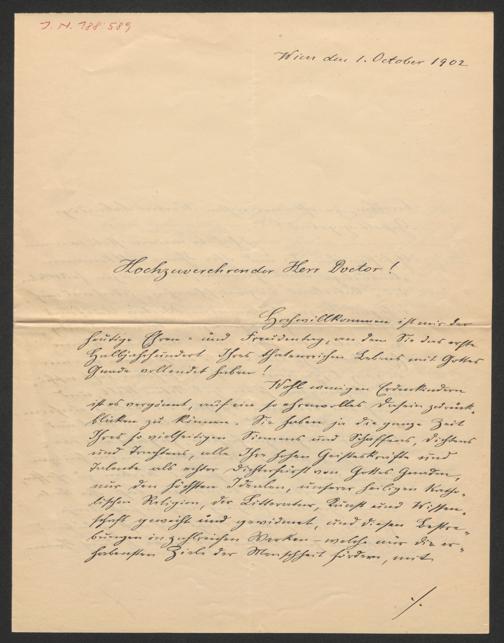 J. N. 188.589
Wien den 1. October 1902
Hochzuverehrender Herr Doctor!
Hochwillkommen ist mir der
heutige Ehren- und Freudentag, an dem Sie das erste
Halbjahrhundert Ihres thatenreichen Lebens mit Gottes
Gnade vollendet haben!
Wohl wenigen Erdenkindern
ist es vergönnt, auf ein so ehrenvolles Dasein zurück-
blicken zu können. Sie haben ja die ganze Zeit
Ihres so vielseitigen Sinnens und Schaffens, Dichtens
und Trachtens, alle Ihre hohen Geisteskräfte und
Talente als echter Dichterfürst von Gottes Gnaden,
nur den höchsten Idealen, unserer heiligen Katho-
lischen Religion, der Litteratur, Kunst und Wissen-
schaft geweiht und gewidmet, und diesen Bestre-
bungen in zahlreichen Werken – welche nur die er-
habensten Ziele der Menschheit fördern, mit
./.